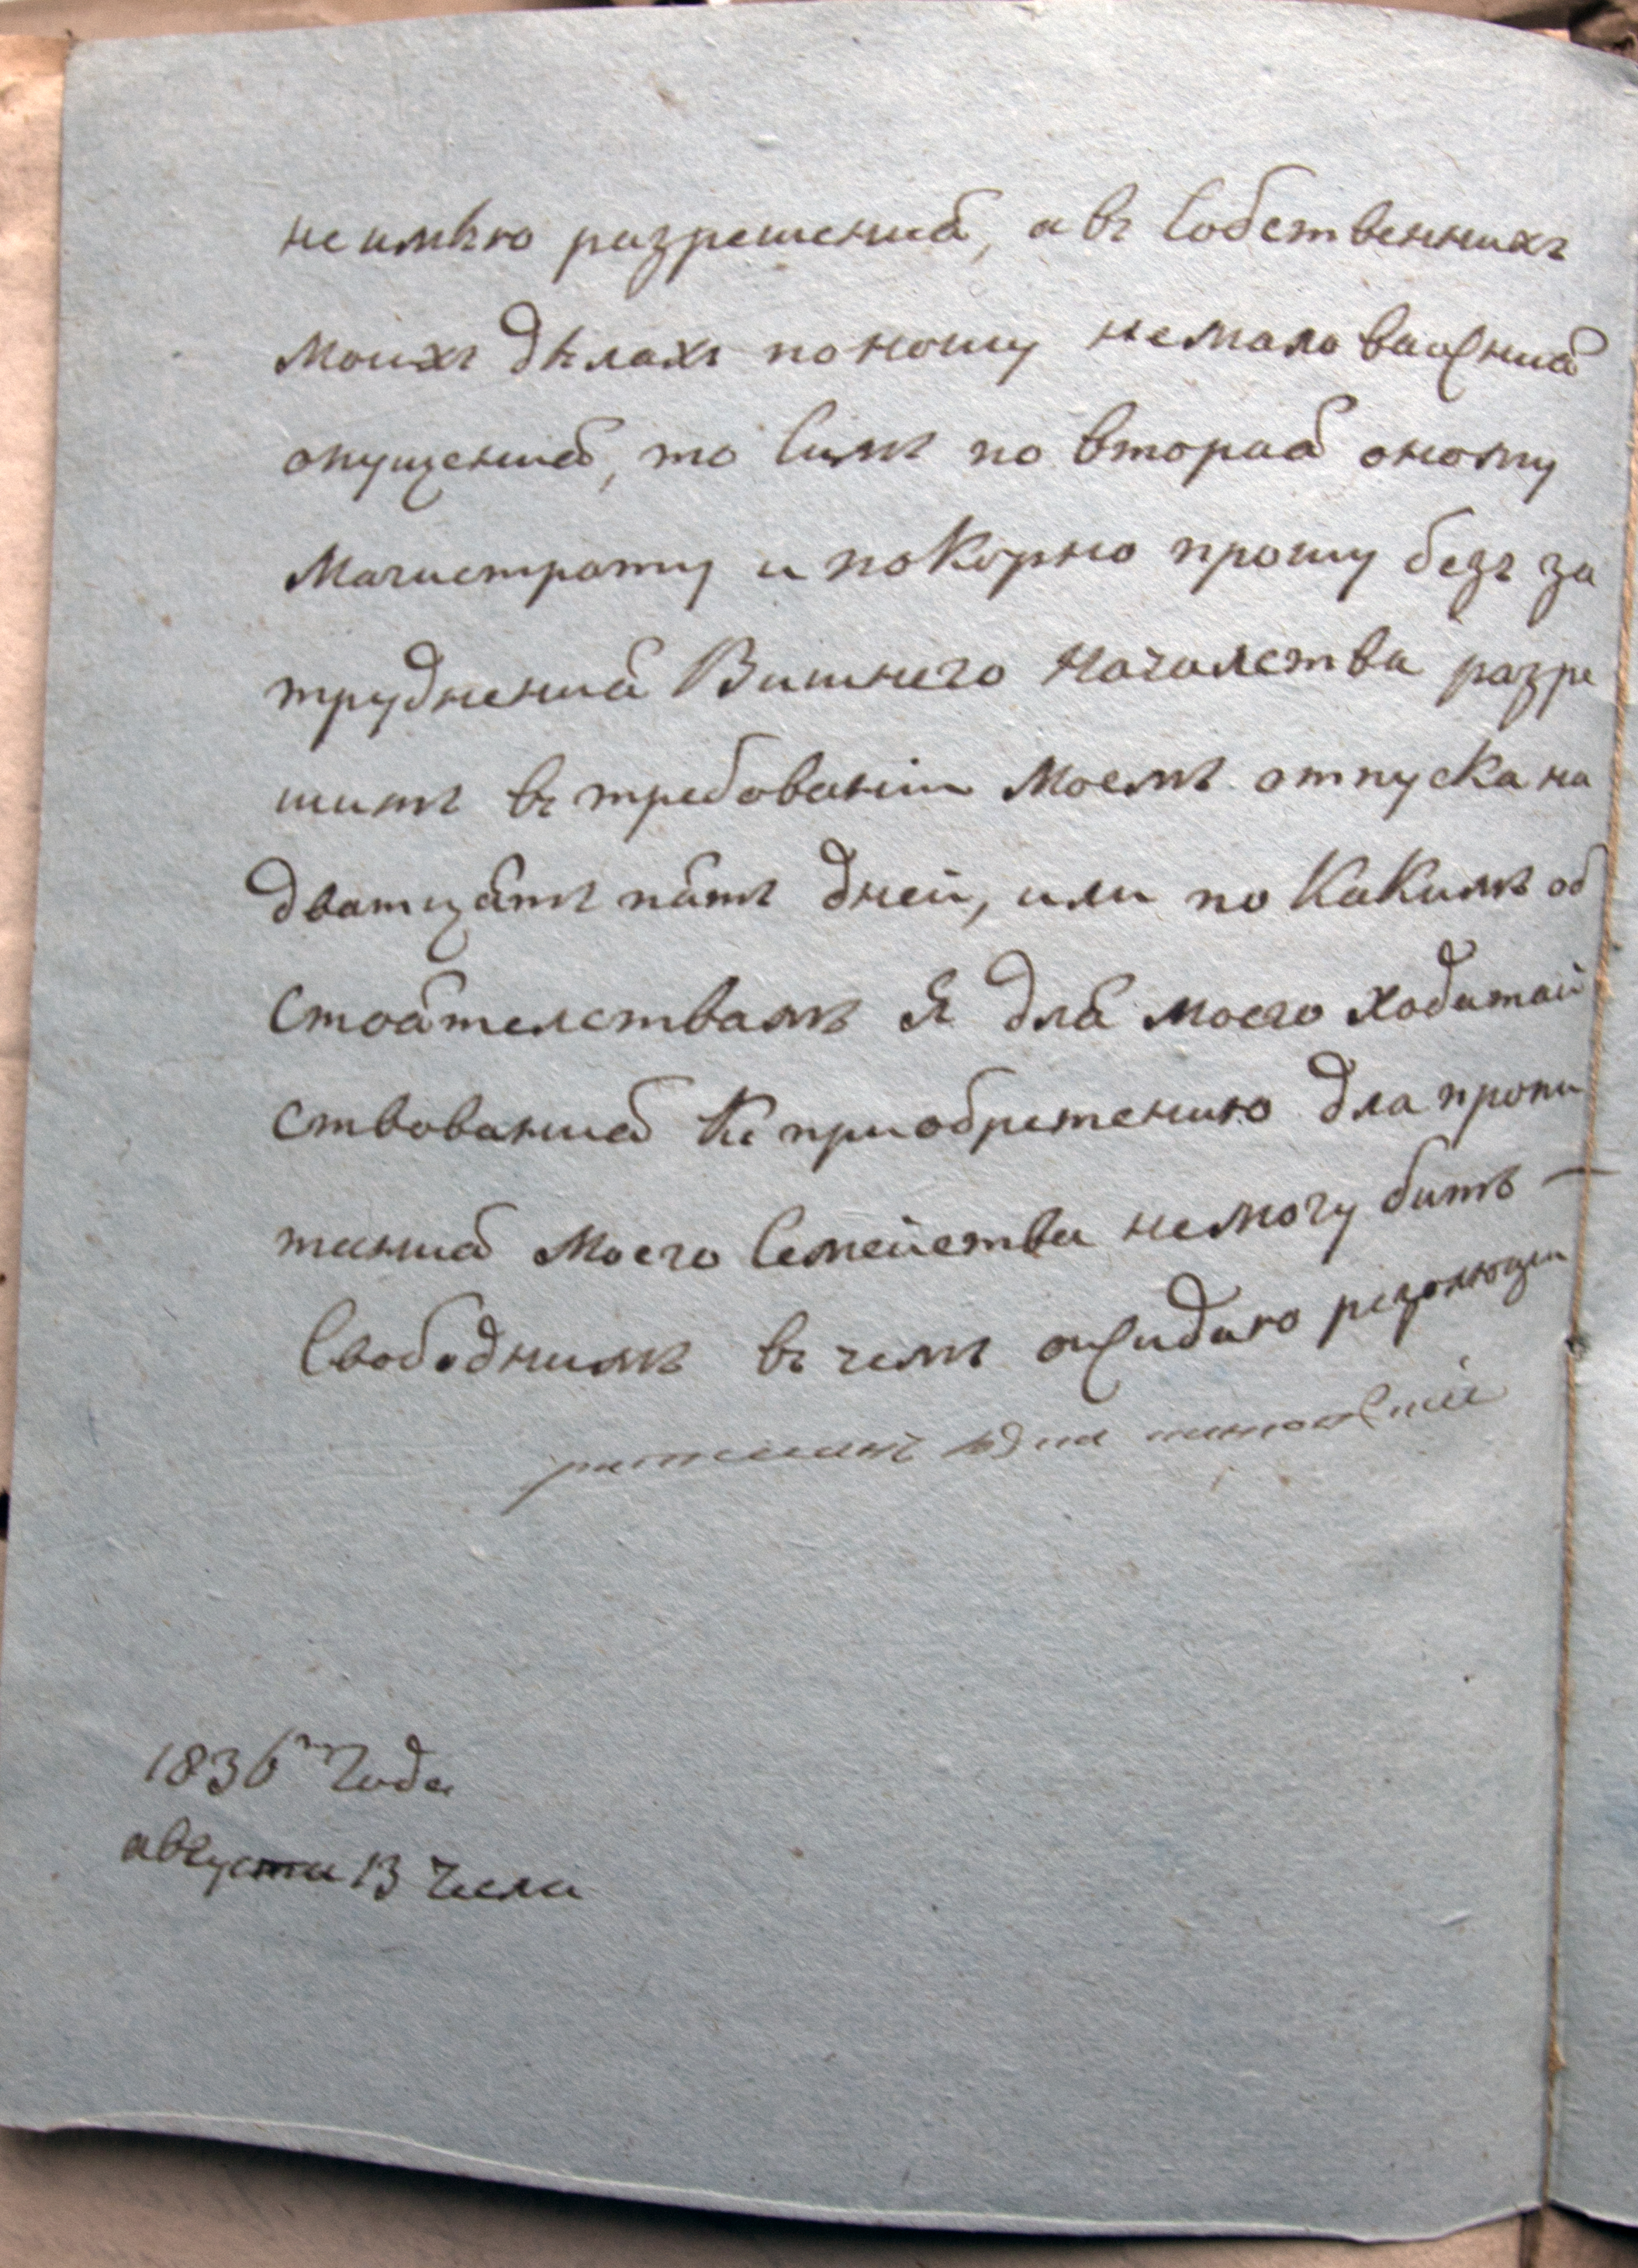 неимѣю разрешения, а въ Собственнихъ
моихъ дѣлахъ поношу немало важния
опущения, то Симъ по вторая оному
Магистрату и покорно прошу безъ за
труднения Вишнего Началства разре
шить въ требованіи моемъ отпуска на
дватцать пять дней, или по какимъ об
стоятелствамъ Я для моего ходатай
ствования къ приобретению для пропи
тания моего Семейства немогу бить —
Свободнимъ въ чемъ ожидаю резолюции
ратманъ
1836го Года
августа 13 Числа